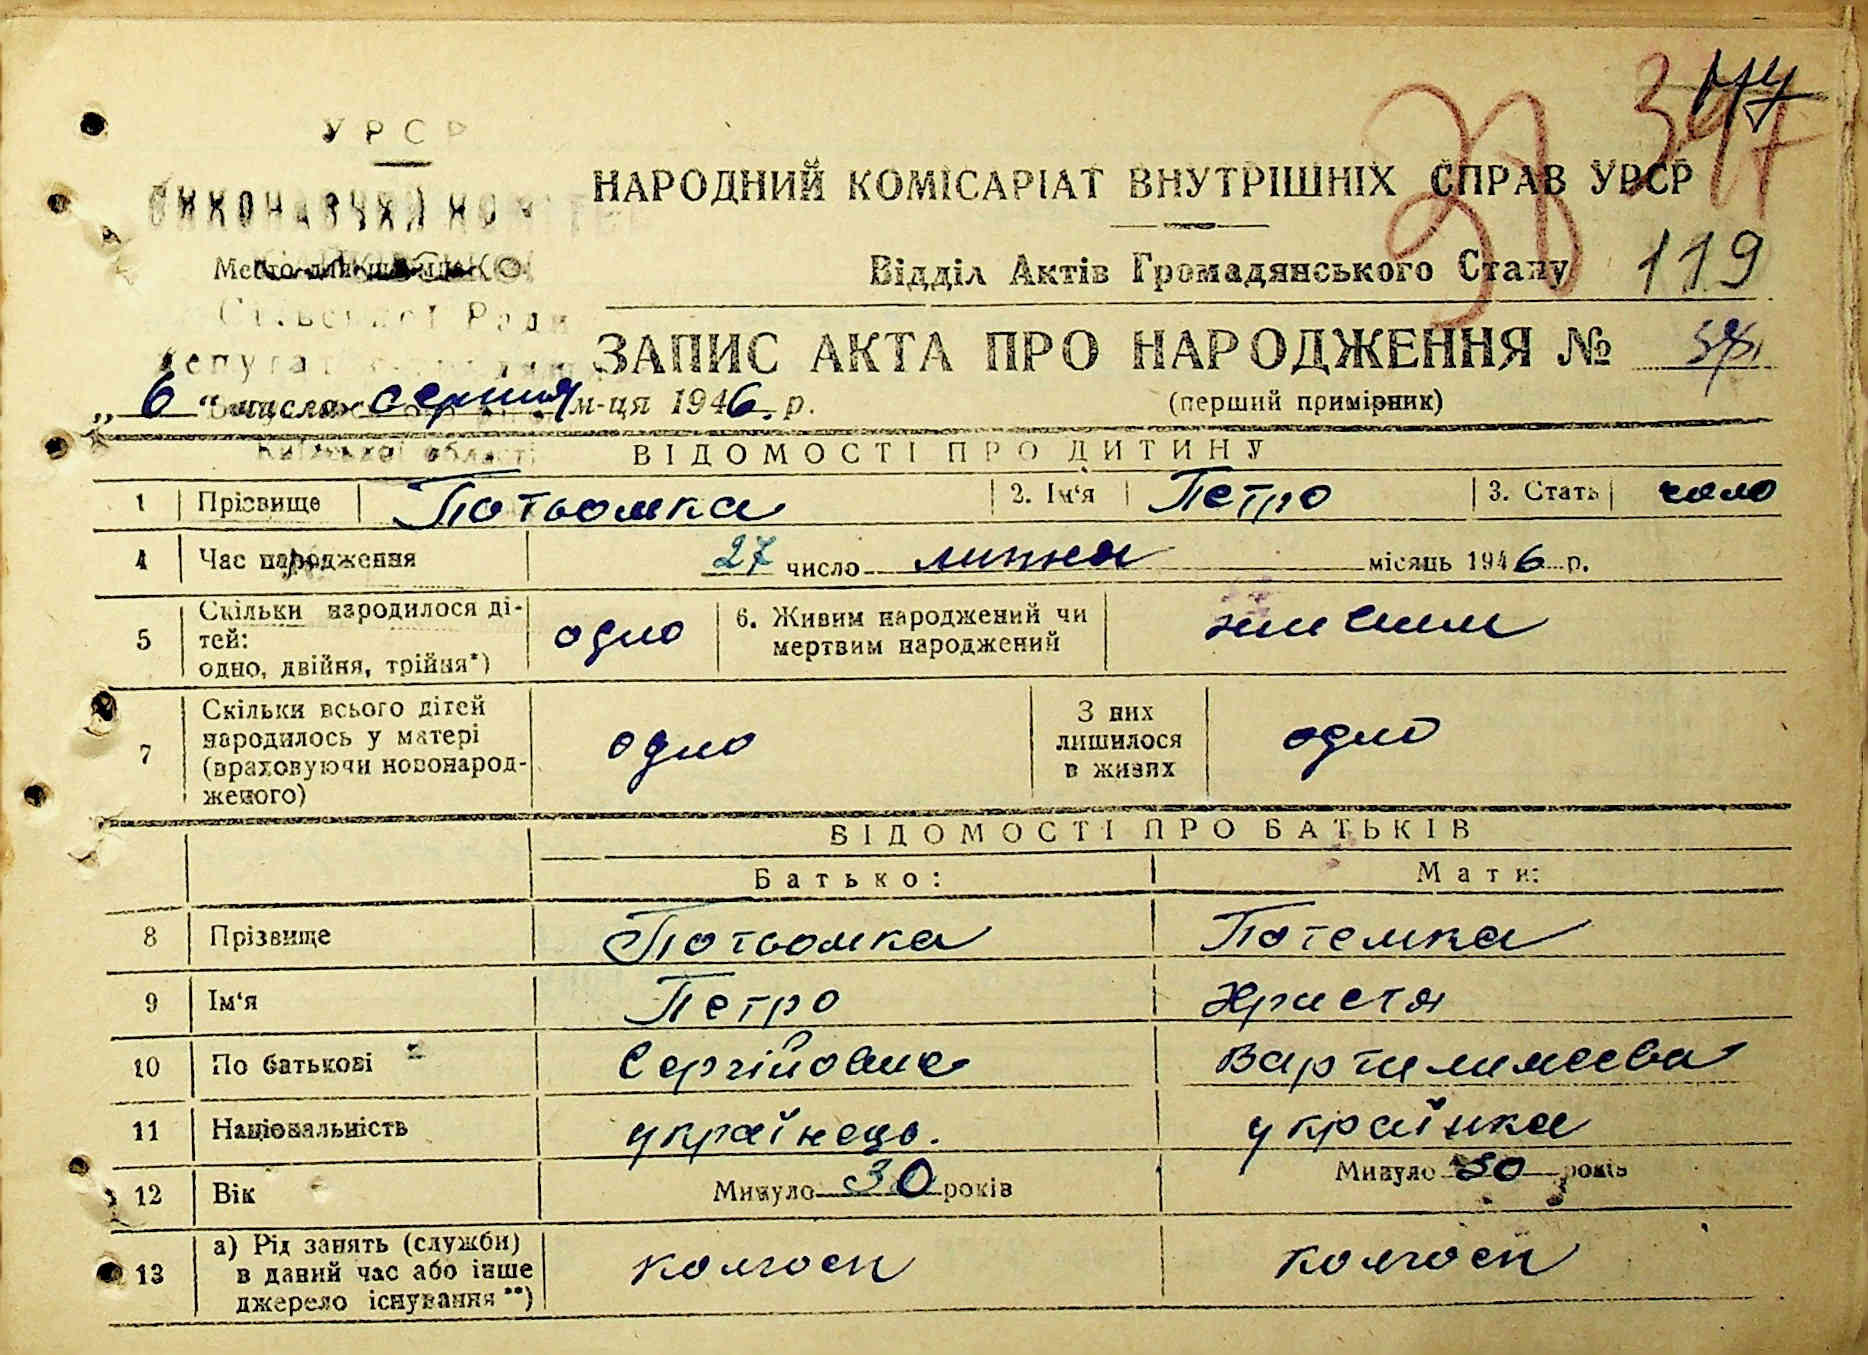 У Р С Р
НАРОДНИЙ КОМІСАРІАТ ВНУТРІШНІХ СПРАВ УРСР
Відділ Актів Громадянського Стану 119
Сільської Ради
ЗАПИС АКТА ПРО НАРОДЖЕННЯ №
„6“ числа серпня м-ця 1946 р. (перший примірник)
Київської області
ВІДОМОСТІ ПРО ДИТИНУ
1 Прізвище Потьомка 2. Ім‘я Петро 3. Стать чоло
4 Час народження 27 число липня місяць 1946 р.
5 Скільки народилося ді-
тей:
одно, двійня, трійня*) одно 6. Живим народжений чи
мертвим народжений живим
7 Скільки всього дітей
народилось у матері
(враховуючи новонарод-
женого) одно З них
лишилося
в живих одно
ВІДОМОСТІ ПРО БАТЬКІВ
Батько: Мати:
8 Прізвище Потьомка Потемка
9 Ім‘я Петро Христя
10 По батькові Сергійович
11 Національність українець. українка
12 Вік Минуло 30 років Минуло 30 років
13 а) Рід занять (служби)
в даний час або інше
джерело існування**) колгосп колгосп